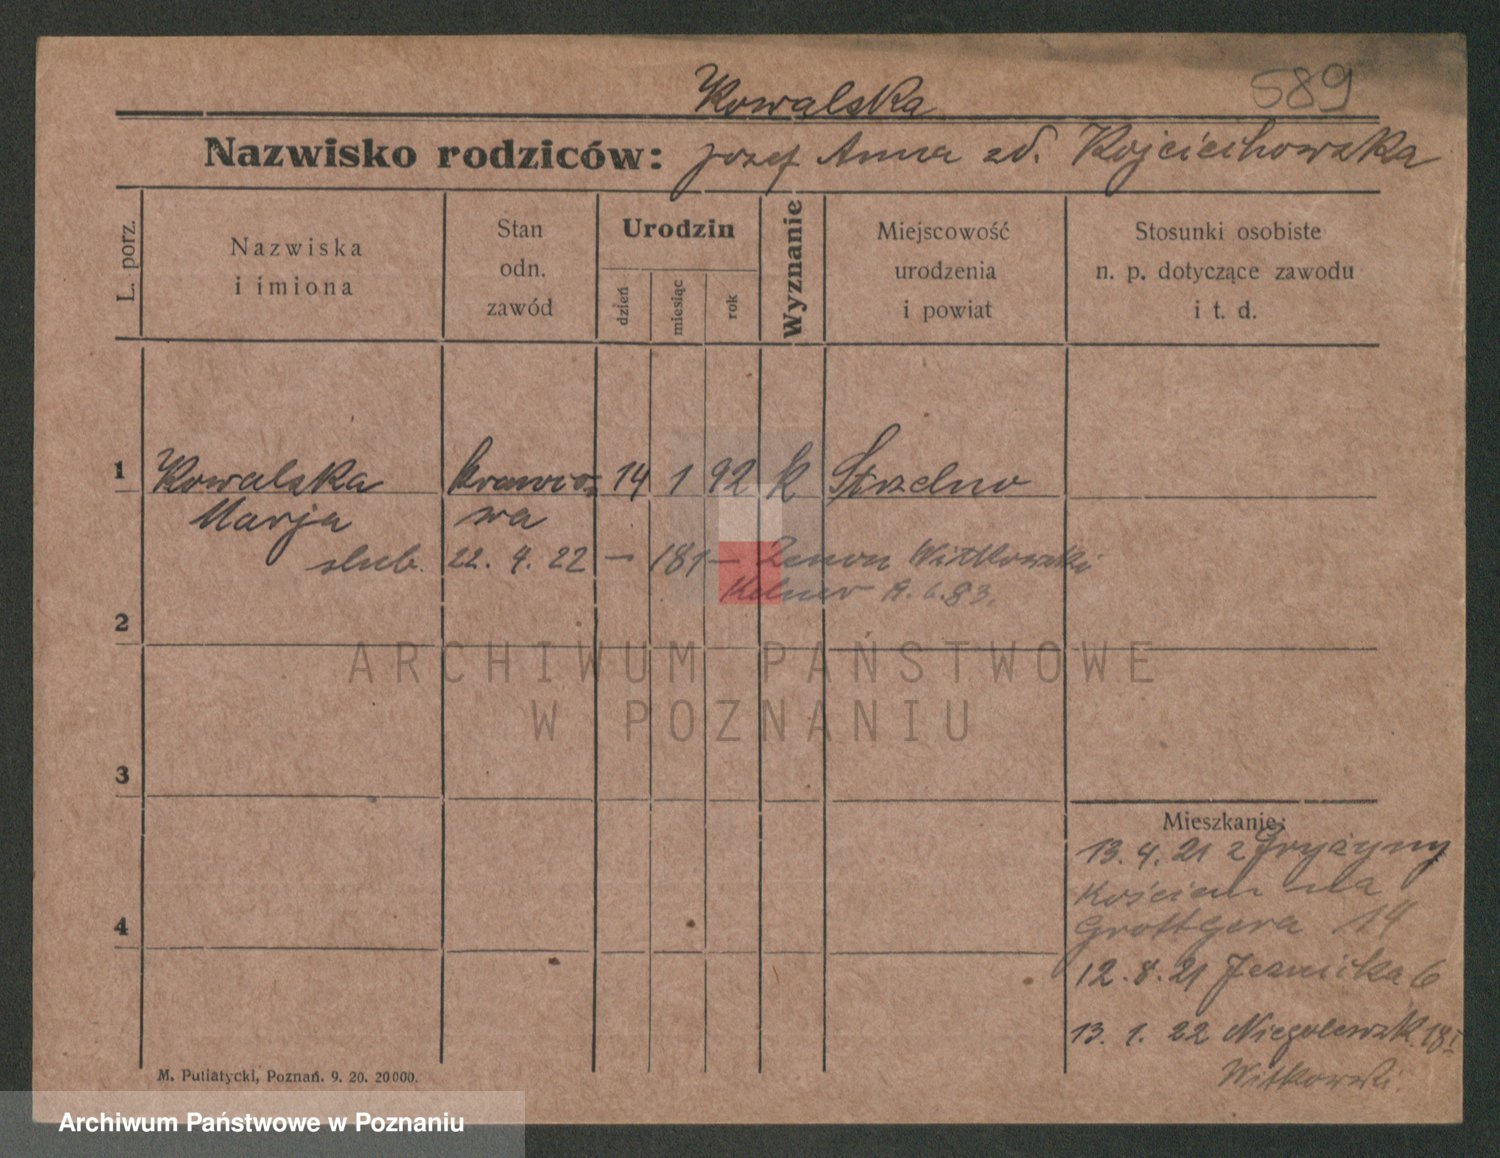 Kowalska
589
Nazwisko rodziców: Józef Anna zd. Wojciechowska
L. porz.
Nazwiska
i imiona
Stan
odn.
zawód
Urodzin
dzień
miesiąc
rok
Wyznanie
Miejscowość
urodzenia
i powiat
Stosunki osobiste
n. p. dotyczące zawodu
i t. d.
1 Kowalska krawco- 14 1 92 k Strzelno
Marja wa
slub. 22. 4. 22 – 181 – Zenon Witkowski
Kelner 9. 6. 83.
2
3
4
Mieszkanie:
13. 4. 21 z Gryżyny
Kościan na
Grottgera 14
12. 8. 21 6
13. 1. 22 Niegolewsk. 18
Witkowski.
M. Putiatycki, Poznań. 9. 20. 20000.
ARCHIWUM PAŃSTWOWE
W POZNANIU
Archiwum Państwowe w Poznaniu